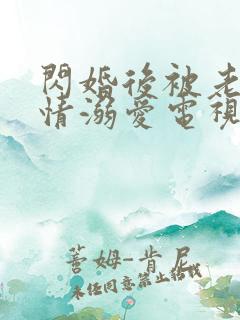 閃婚後被老
情溺愛電視
蓍姆-肯尼
未經同意禁止轉載